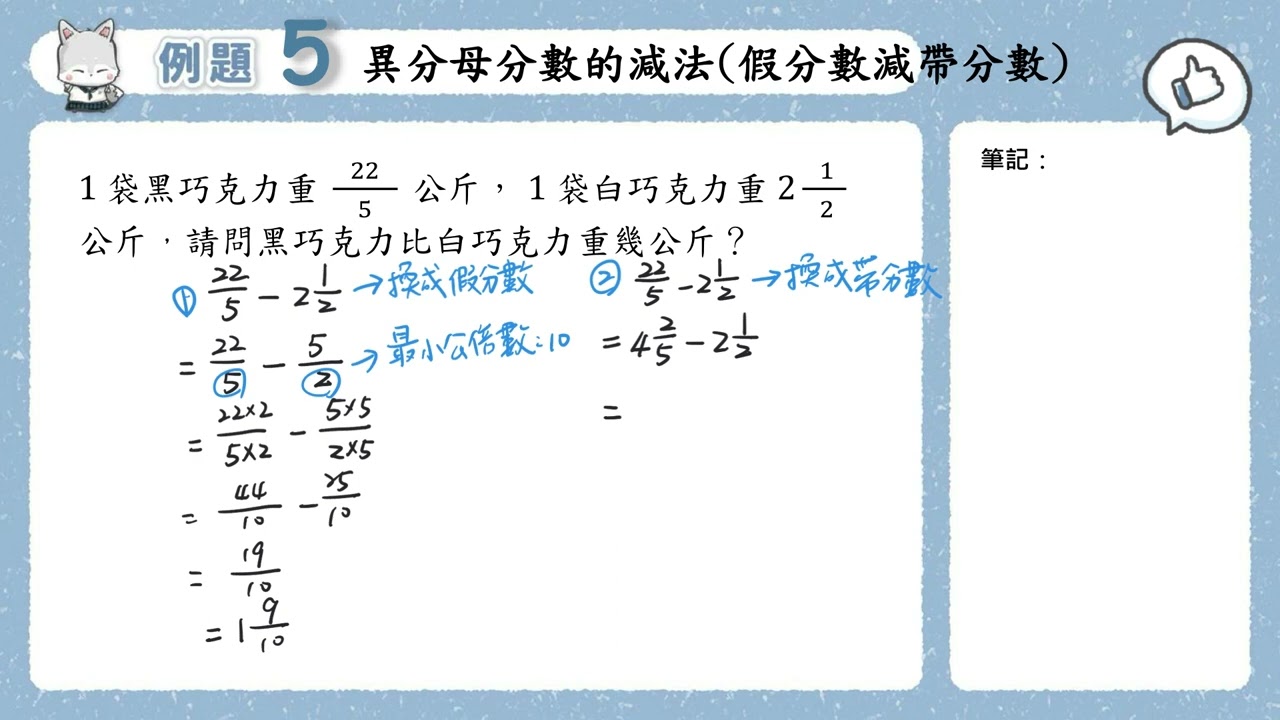 例題 5 異分母分數的減法(假分數減帶分數)
1 袋黑巧克力重 22/5 公斤， 1 袋白巧克力重 2 1/2
公斤，請問黑巧克力比白巧克力重幾公斤？
① 22/5 - 2 1/2 → 換成假分數
= 22/5 - 5/2 → 最小公倍數:10
= 22×2/5×2 - 5×5/2×5
= 44/10 - 25/10
= 19/10
= 1 9/10
② 22/5 - 2 1/2 → 換成帶分數
= 4 2/5 - 2 1/2
=
筆記：